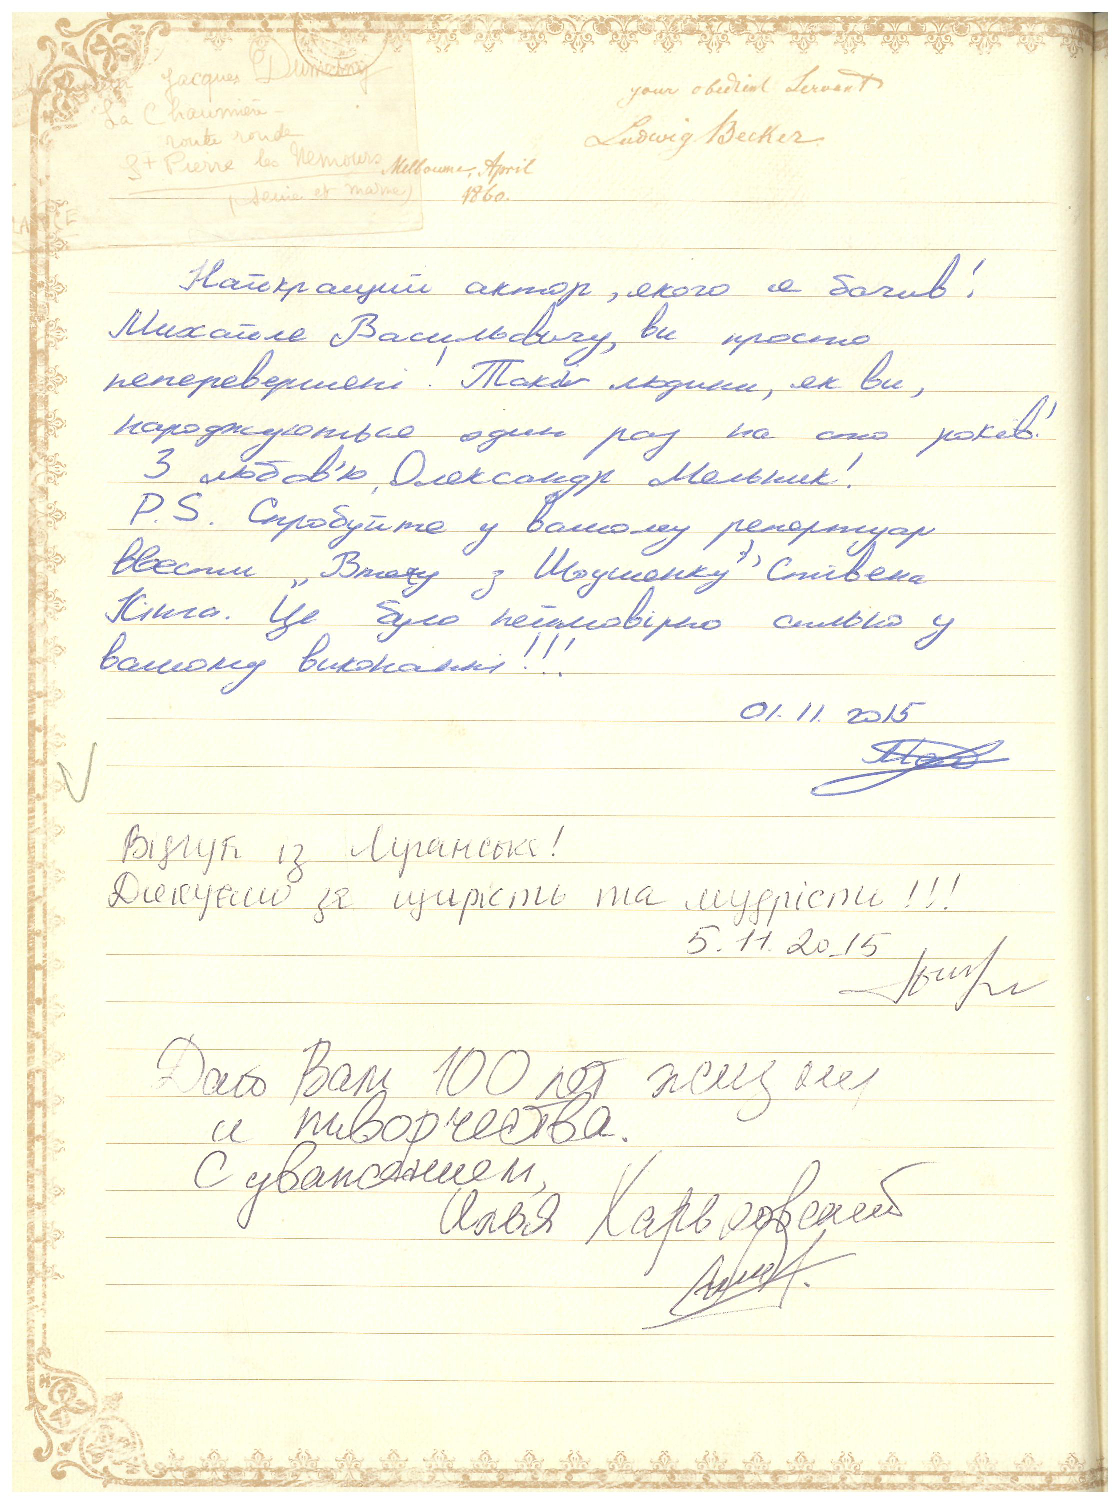 Jacques Dumesnay
La Chaumière
route ronde
St Pierre les Nemours
(Seine et Marne)
your obedient Servant
Ludwig Becker
Melbourne, April
1860.
Найкращий актор, якого я бачив!
Михайле Васильовичу, ви просто
неперевершені! Такі людини, як ви,
народжуються один раз на сто років!
З любов'ю, Олександр Мельник!
P.S. Спробуйте у вашому репертуар
ввести „Втечу з Шоушенку" Стівена
Кінга. Це було неймовірно сильно у
вашому виконанні!!!
01.11.2015
Відгук із Луганськ!
Дякуємо за щирість та мудрість!!!
5.11.2015
Дай Вам 100 лет жизни
и творчества.
С уважением,
Илья Харьковский